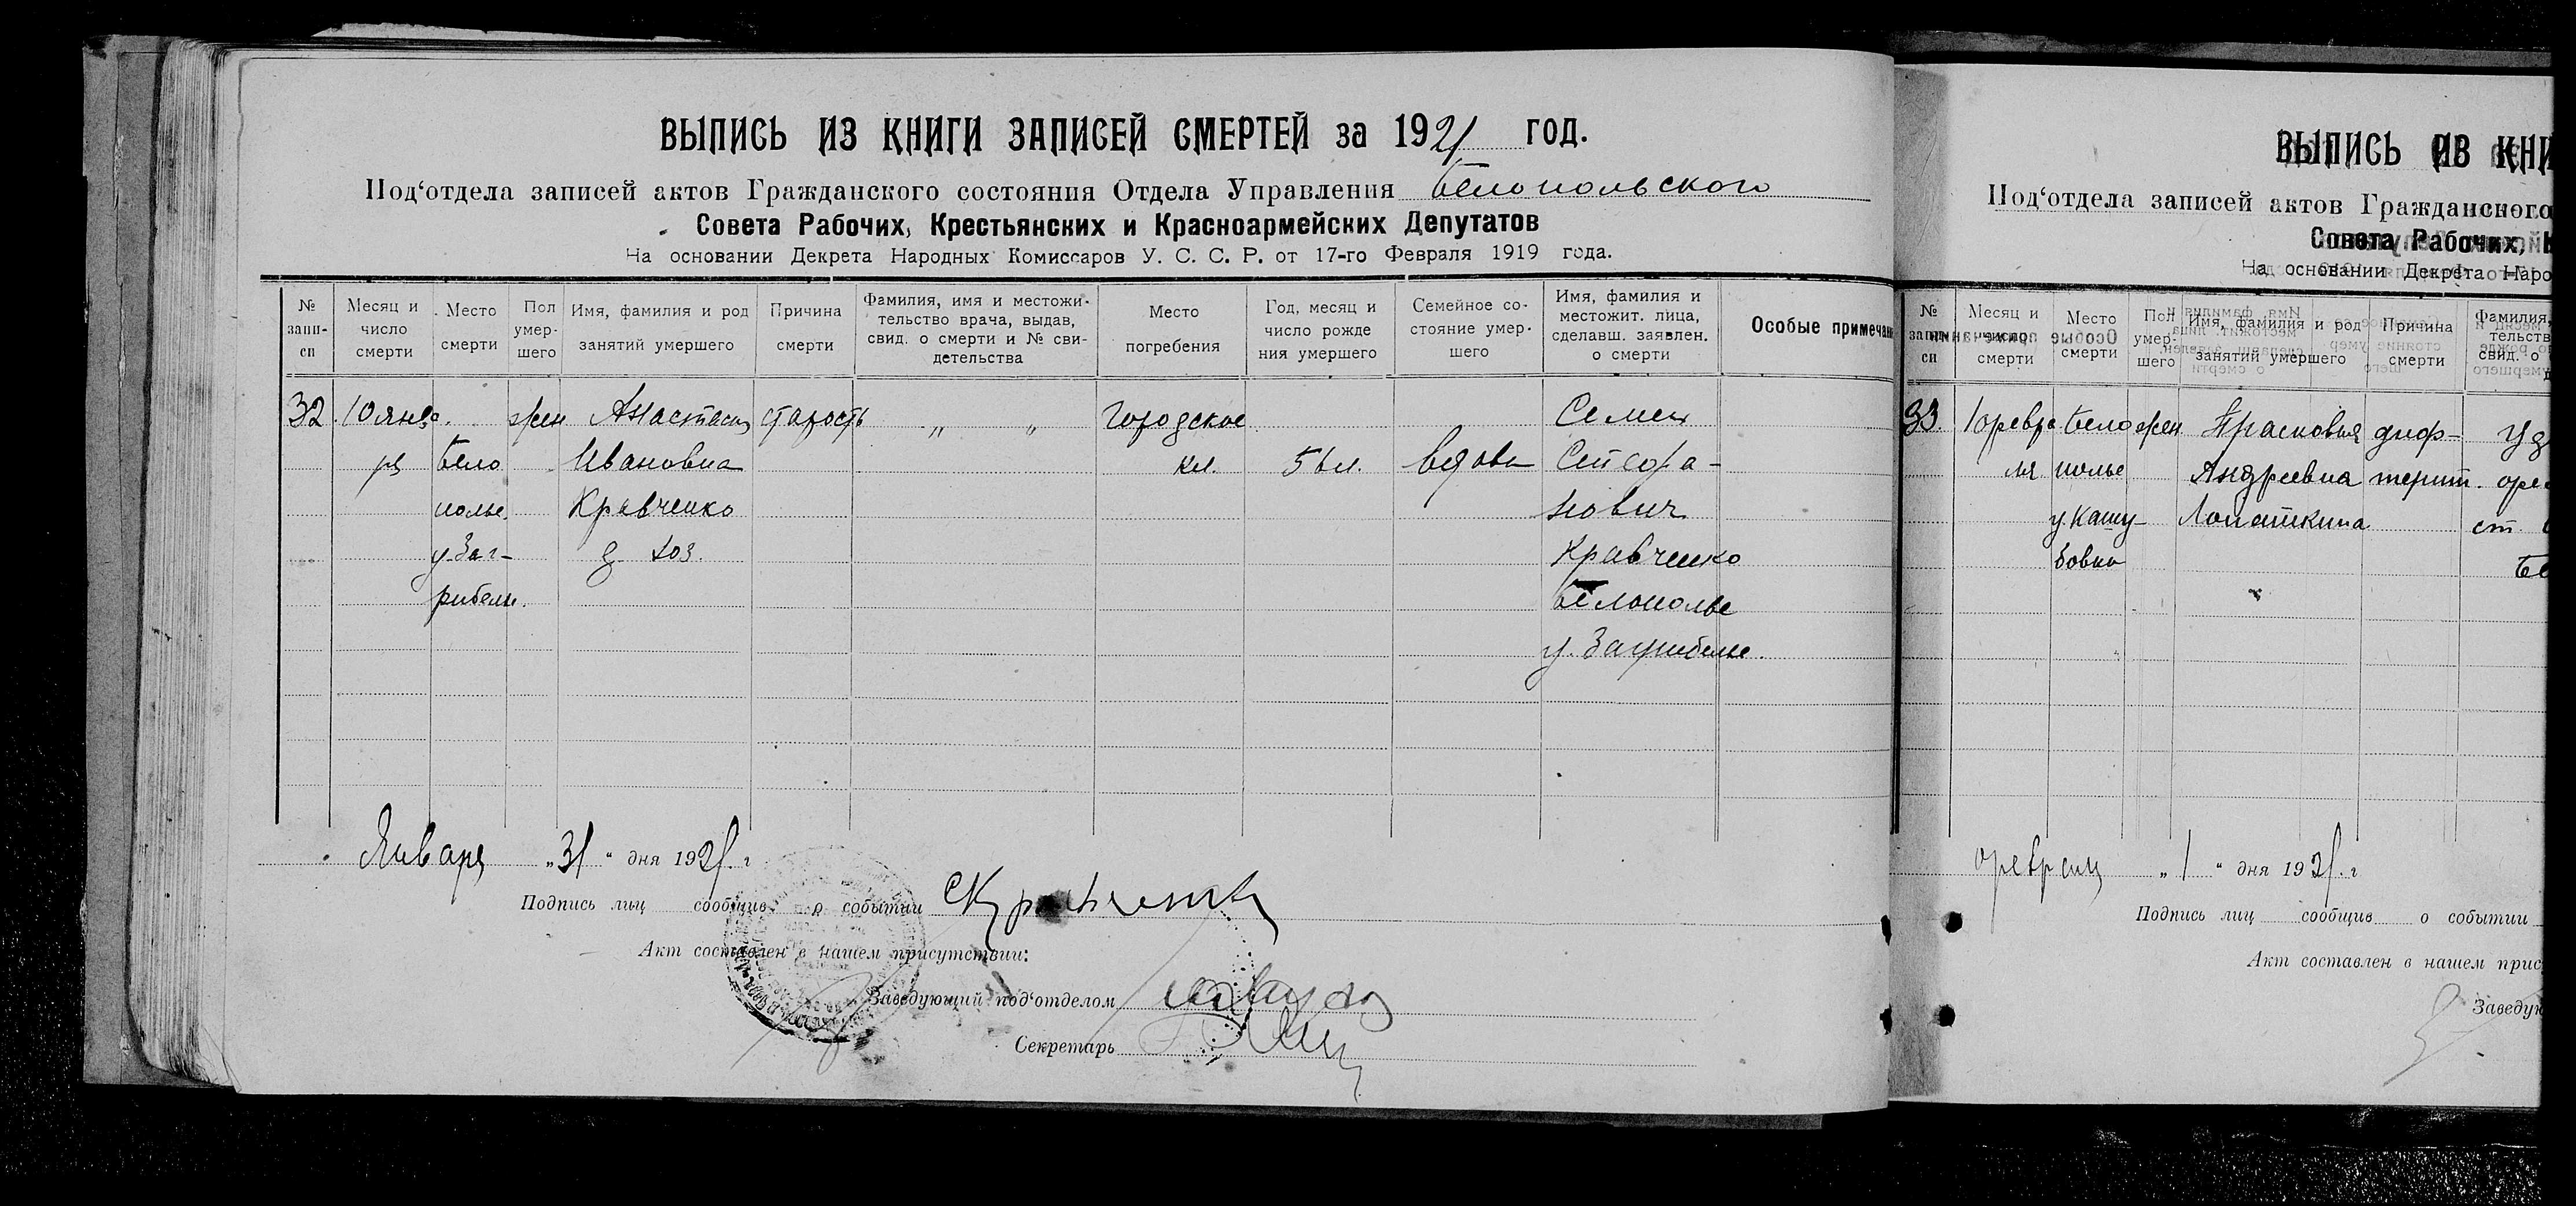 ВЫПИСЬ ИЗ КНИГИ ЗАПИСЕЙ СМЕРТЕЙ за 1921 год.
Под‘отдела записей актов Гражданского состояния Отдела Управления Белопольского
Совета Рабочих, Крестьянских и Красноармейских Депутатов
На основании Декрета Народных Комиссаров У. С. С. Р. от 17-го Февраля 1919 года.
№ запи-си
Месяц и число смерти
Место смерти
Пол умер-шего
Имя, фамилия и род занятий умершего
Причина смерти
Фамилия, имя и местожи-тельство врача, выдав, свид. о смерти и № сви-детельства
Место погребения
Год, месяц и число рожде ния умершего
Семейное со-стояние умер-шего
Имя, фамилия и местожит. лица, сделавш. заявлен. о смерти
Особые примечан
32. 10 янва. жен Анастасия старость „ „ Городское Семен
ря Бело Ивановна кл. 56 л. вдова Стефа-
полье. Кравченко нович
у. Заг- д. хоз. Кравченко
рибелье. Белополье
у. Загрибелье.
Января „31“ дня 1921. г
Подпись лиц сообщив. о событии
Акт составлен в нашем присутствии:
Заведующий под‘отделом
Секретарь
ВЫПИСЬ ИЗ КНИ
Под‘отдела записей актов Гражданского
Совета Рабочих, К
На основании Декрета Наро
№ записи
Месяц и число смерти
Место смерти
Пол умер-шего
Имя, фамилия и род занятий умершего
Причина смерти
Фамилия, тельств свид. о
33. 1 февра Бело жен Прасковья диф-
ля полье Андреевна терит.
у. Кашу- Лопаткина ст.
бовка
февраля „1“ дня 1921. г
Подпись лиц сообщив о событии
Акт составлен в нашем прис
Заведую